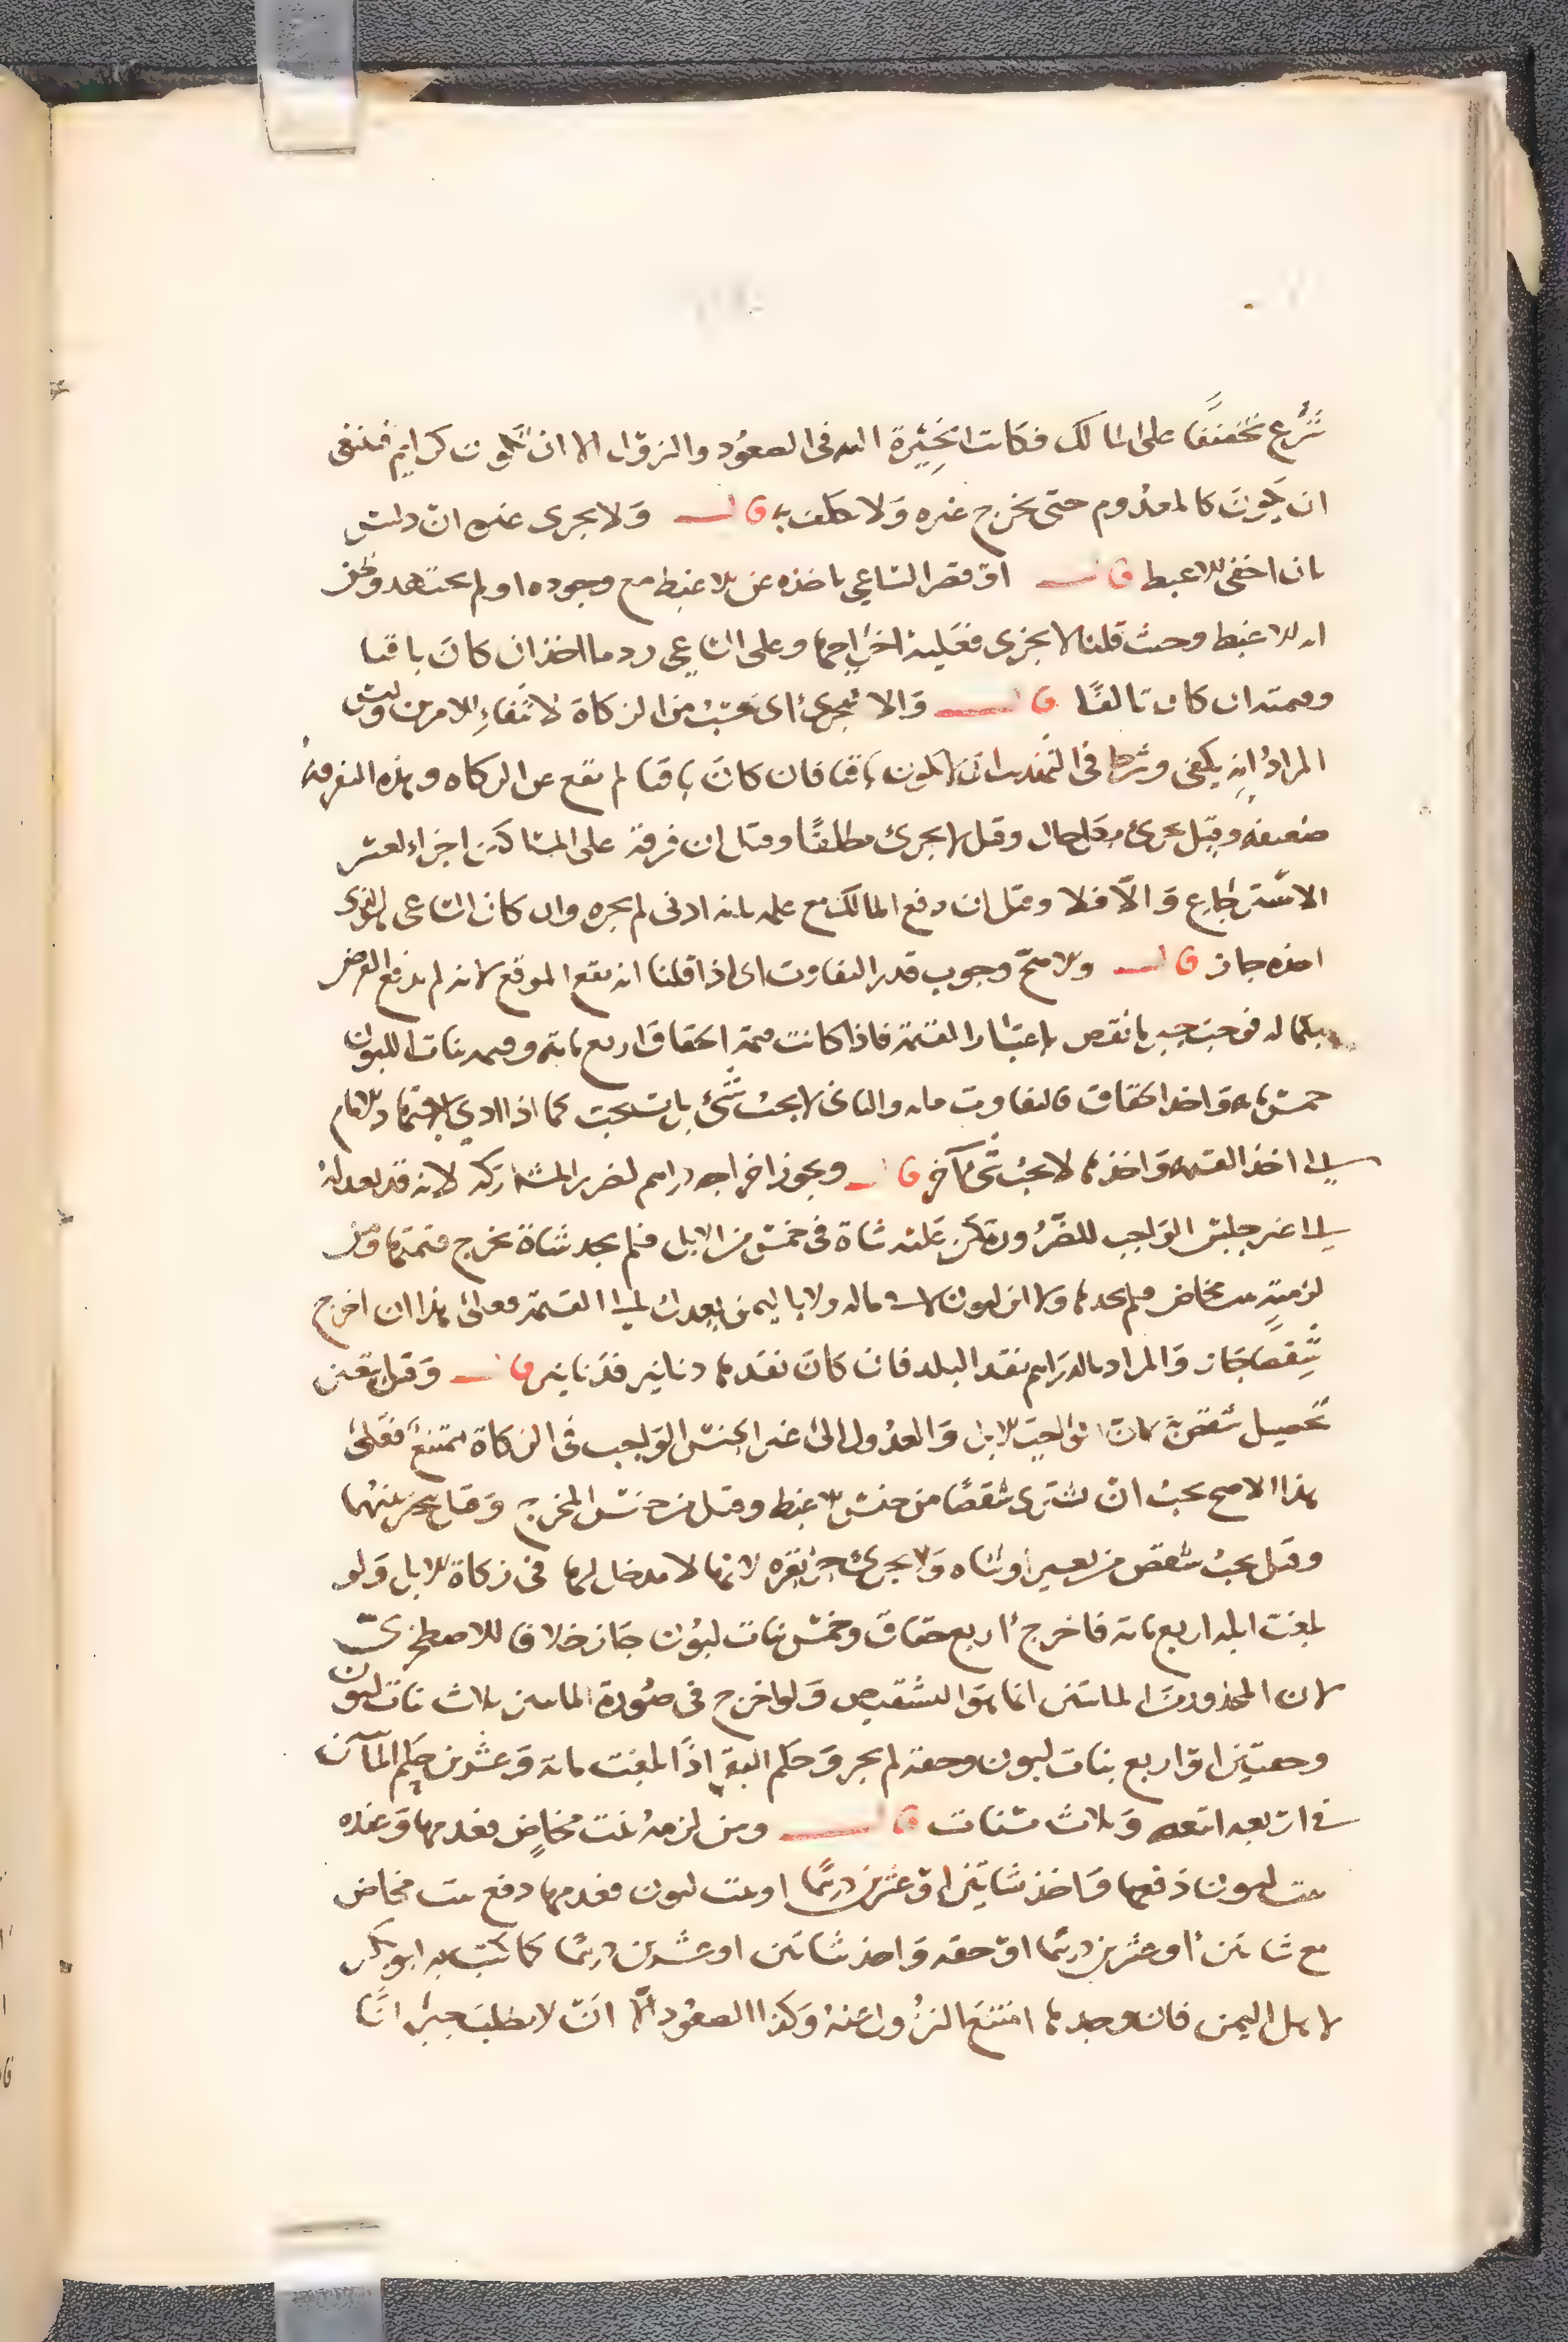 شرع تخفيفا على المالك فكانت الخيرة اليه في الصعود والنزول الا ان تكون كرايم فينبغي
ان يكون كالمعدوم حتى يخرج غيره ولا يكلف به قال ولا يجزى غيره ان دلس
بان اخفى الاغبط قال او قصر الساعي باخذه غير الاغبط مع وجوده او لم يجتهد وظن
انه الاغبط وحيث قلنا لا يجزى فعليه اخراجها وعلى الساعي رد ما اخذ ان كان باقيا
وقيمته ان كان تالفا قال والا فيجزئ اى يحسب من الزكاة لانتفاء الامرين وليس
المراد انه يكفي وشرط في التهذيب ان لا يكون باقيا فان كان باقيا لم يقع عن الزكاه وهذه التفرقة
ضعيفه وقيل يجزئ بكل حال وقيل لا يجزئ مطلقا وقيل ان فرقه على المساكين اجزاء لعسر
الاسترجاع والا فلا وقيل ان دفع المالك مع علمه بانه ادنى لم يجزه وان كان الساعي هو الذى
اخذه جاز قال والاصح وجوب قدر التفاوت اى اذا قلنا انه يقع الموقع لانه لم يدفع الفرض
بكماله فوجب جبر ما نقص باعتبار القيمة فاذا كانت قيمة الحقاق اربع مائه وقيمه بنات اللبون
خمس مائه واخذ الحقاق فالتفاوت مايه والثاني لا يجب شئ بل يستحب كما اذا ادى اجتهاد الامام
الى اخذ القيمه واخذها لا يجب شئ آخر قال ويجوز اخراجه دراهم لضرر المشاركه لانه قد يعدل
الى غير جنس الواجب للضرورة كمن عليه شاة في خمس من الابل فلم يجد شاة يخرج قيمتها وكمن
لزمته بنت مخاض فلم يجدها ولا ابن لبون لا في ماله ولا باليمن يعدل الى القيمة فعلى هذا ان اخرج
شقصا جاز والمراد بالدراهم نقد البلد فان كان نقدها دنانير فدنانير قال وقيل يتعين
تحصيل شقص به لان الواجب الابل والعدول الى غير الجنس الواجب في الزكاة ممتنع فعلى
هذا الاصح يجب ان يشترى شقصا من جنس الاغبط وقيل من جنس المخرج وقيل يتخير بينهما
وقيل يجب شقص من بعير او شاه ولا يجزئ جزء بقره لانها لا مدخل لها في زكاة الابل ولو
بلغت ابله اربع مائة فاخرج اربع حقاق وخمس بنات لبون جاز خلافا للاصطخرى
لان المحذور في المائتين انما هو التشقيص ولو اخرج في صورة المائتين ثلاث بنات لبون
وحقتين او اربع بنات لبون وحقه لم يجز وحكم البقر اذا بلغت مائة وعشرين حكم المآتين
في اربعه اتبعه وثلاث مسنات قال ومن لزمه بنت مخاض فعدمها وعنده
بنت لبون دفعها واخذ شاتين او عشرين درهما او بنت لبون فعدمها دفع بنت مخاض
مع شاتين او عشرين درهما او حقه واخذ شاتين او عشرين درهما كما كتب به ابو بكر
لاهل اليمن فان وجدها امتنع النزول عنه وكذا الصعود الا ان لا يطلب جبرانا